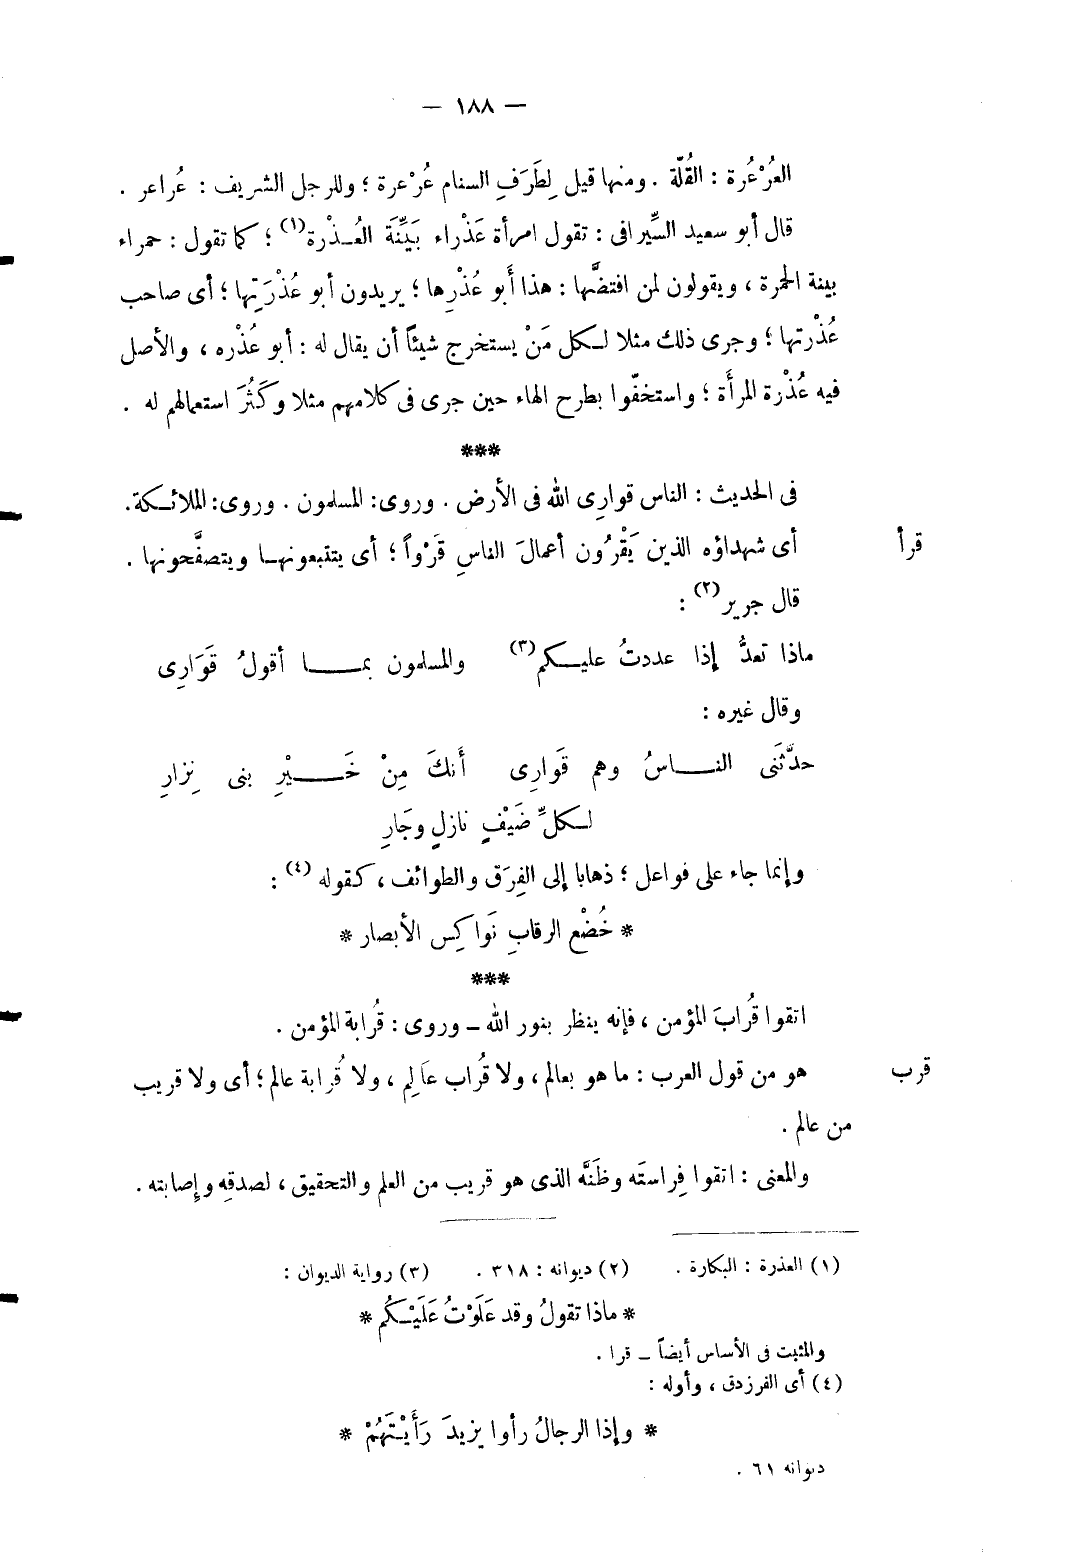 — ١٨٨ —
العُرْعُرة : القُلّة . ومنها قيل لِطَرَفِ السنام عُرْعرة ؛ وللرجل الشريف : عُراعر .
قال أبو سعيد السِّيرافى : تقول امرأة عَذْراء بَيِّنَة العُـذْرة(١) ؛ كما تقول : حمراء
بينة الحمرة ، ويقولون لمن افتضَّها : هذا أَبو عُذْرِها ؛ يريدون أبو عُذْرَتِها ؛ أى صاحب
عُذْرتها ؛ وجرى ذلك مثلا لـكل مَنْ يستخرج شيئاً أن يقال له : أبو عُذْره ، والأصل
فيه عُذْرة المرأَة ؛ واستخفّوا بطرح الهاء حين جرى فى كلامهم مثلا وكَثُرَ استعمالهم له .
***
فى الحديث : الناس قوارِى الله فى الأرض . وروى: المسلمون . وروى: الملائـكة.
قرأ
أى شهداؤه الذين يَقْرُون أعمالَ الناسِ قَرْواً ؛ أى يتتبعونهـا ويتصفَّحونها .
قال جرير(٢) :
ماذا تعدُّ إذا عددتُ عليـكم(٣) والمسلمون بمـا أقولُ قَوَارِى
وقال غيره :
حدَّثَنى النـاسُ وهم قَوارِى أَنكَ مِنْ خَـيْرِ بنى نِزارِ
لـكلِّ ضَيْفٍ نازلٍ وجَارِ
وإنما جاء على فواعل ؛ ذهابا إلى الفِرَق والطوائف ، كقوله(٤) :
* خُضْع الرقابِ نَواكِس الأبصار *
***
اتقوا قُرابَ المؤمن ، فإنه ينظر بنور الله ــ وروى : قُرابة المؤمن .
قرب
هو من قول العرب : ما هو بعالم ، ولا قُراب عَالِم ، ولا قُرابة عالم ؛ أى ولا قريب
من عالم .
والمعنى : اتقوا فِراستَه وظَنَّه الذى هو قريب من العلم والتحقيق ، لصدقِه وإصابته .
(١) العذرة : البكارة . (٢) ديوانه : ٣١٨ . (٣) رواية الديوان :
* ماذا تقولُ وقد عَلَوْتُ عَلَيْـكُم *
والمثبت فى الأساس أيضاً ــ قرا .
(٤) أى الفرزدق ، وأوله :
* وإذا الرجالُ رأوا يزيدَ رَأَيْـتَهُمْ *
ديوانه ٦١ .